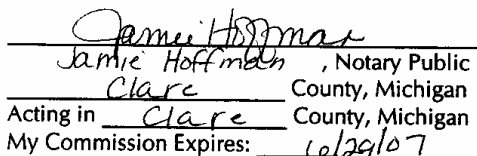 Jamie Hoffman
Jamie Hoffman, Notary Public
Clare County, Michigan
Acting in Clare County, Michigan
My Commission Expires: 6/29/07